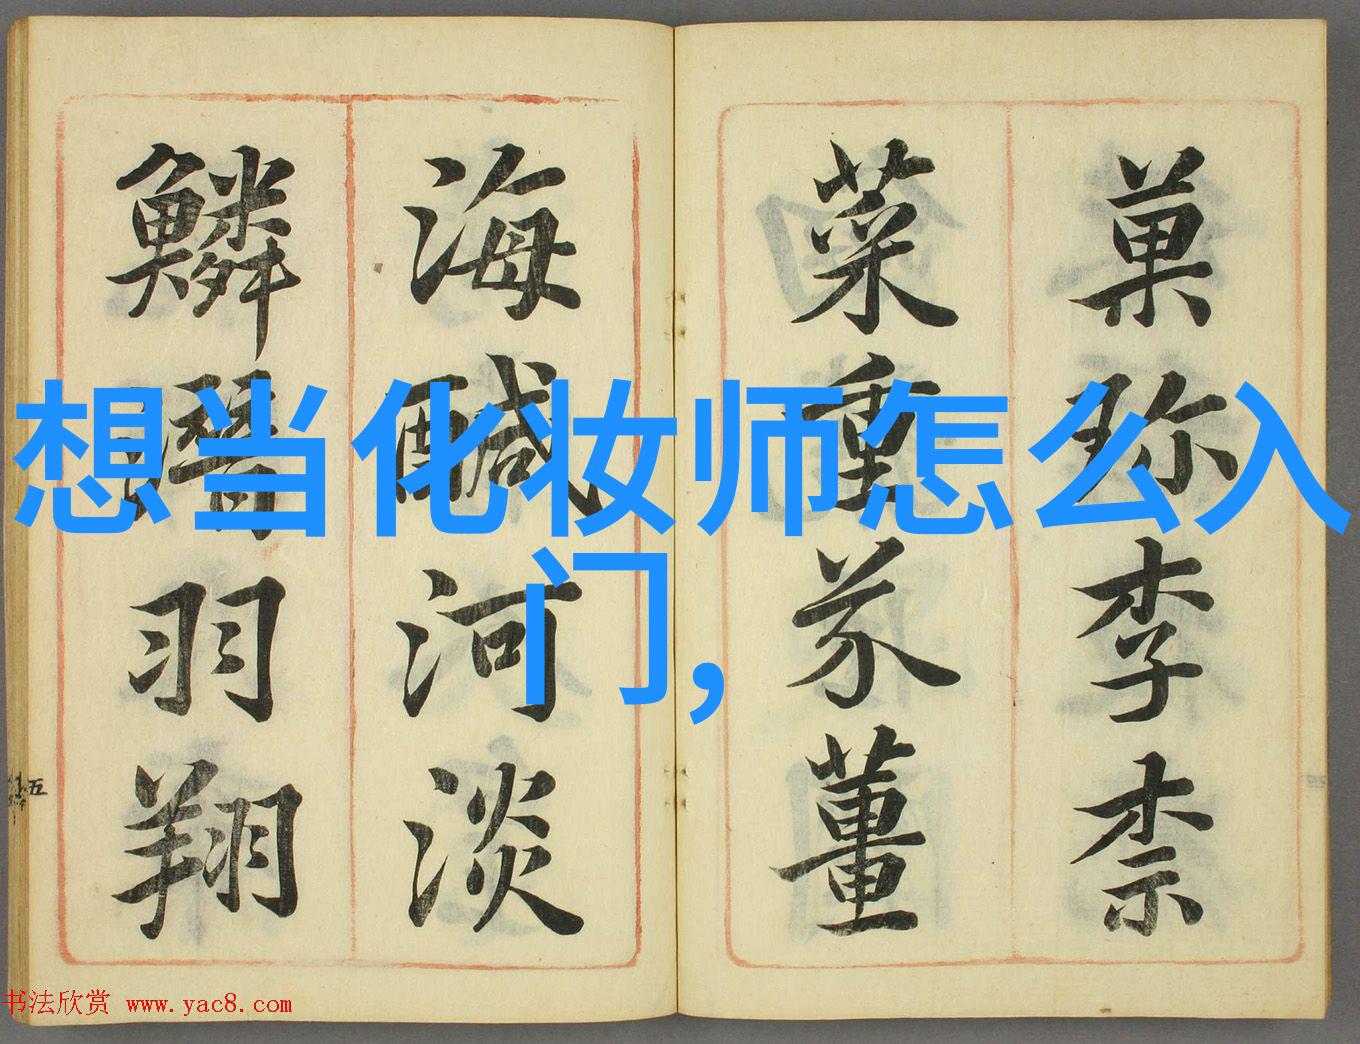 菓珎李柰
菜重芥薑
海鹹河淡
鱗潛羽翔
五
想当化妆师怎么入
门,
书法欣赏 www.yac8.com